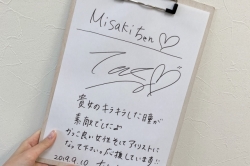 Misakiちゃん♡
貴女のキラキラした瞳が
素敵でしたよ
かっこ良い女性そしてアーティストに
なって下さい。応援しています
2019.9.10